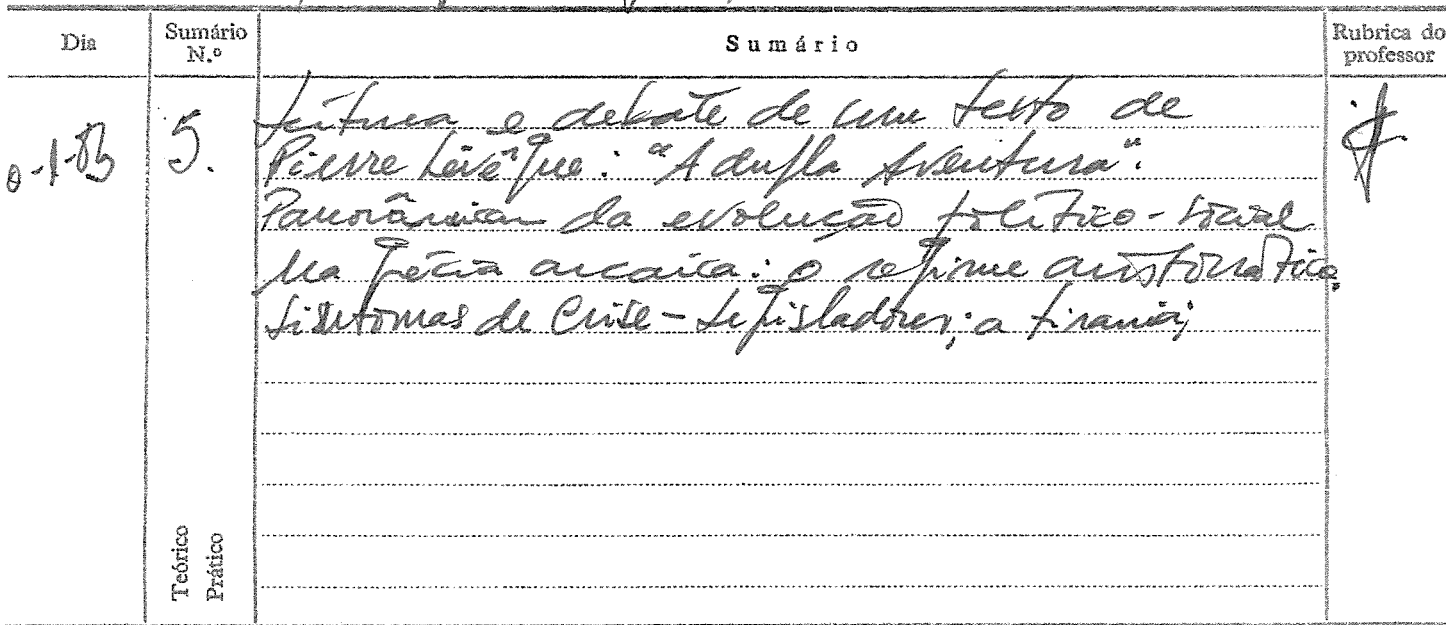 Dia
Sumário N.º
Sumário
Rubrica do professor
0-1-83
5.
Leitura e debate de um texto de
Pierre Lévêque: "A dupla Aventura".
Panorâmica da evolução político-social
na Grécia arcaica: o regime aristocrático,
Sintomas de Crise - Legisladores; a tirania;
Teórico
Prático